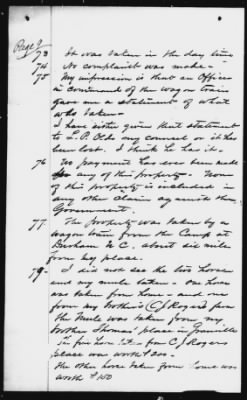 Page 9
73 It was taken in the day time
74 No complaint was made -
75 My impression is that an Officer
in Command of the wagon train
gave me a statement of what
was taken -
I have either given that statement
to E.P. Olds my counsel or it has
been lost. I think he has it -
76 No payment has ever been made
for any of this property - None
of this property is included in
any other claim against the
Government.
77. The property was taken by a
wagon train from the Camp at
Durham N.C. about six mile
from my place.
79 - I did not see the two horses
and my mule taken - one horse
was taken from home - and one
from my brother's (C.J. Rogers) farm
The Mule was taken from my
brother Thomas' place in Granville
The horse from C J Rogers
place was worth $200 -
The other horse taken from home was
worth $150